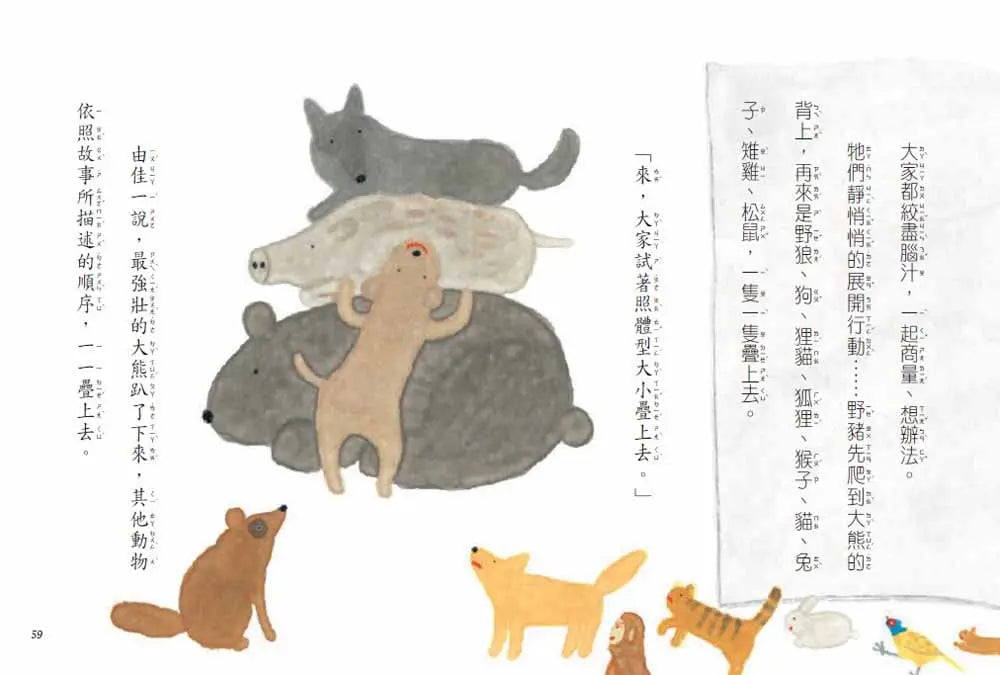 大家都絞盡腦汁，一起商量、想辦法。
牠們靜悄悄的展開行動……野豬先爬到大熊的
背上，再來是野狼、狗、狸貓、狐狸、猴子、貓、兔
子、雉雞、松鼠，一隻一隻疊上去。
「來，大家試著照體型大小疊上去。」
由佳一說，最強壯的大熊趴了下來，其他動物
依照故事所描述的順序，一一疊上去。
59